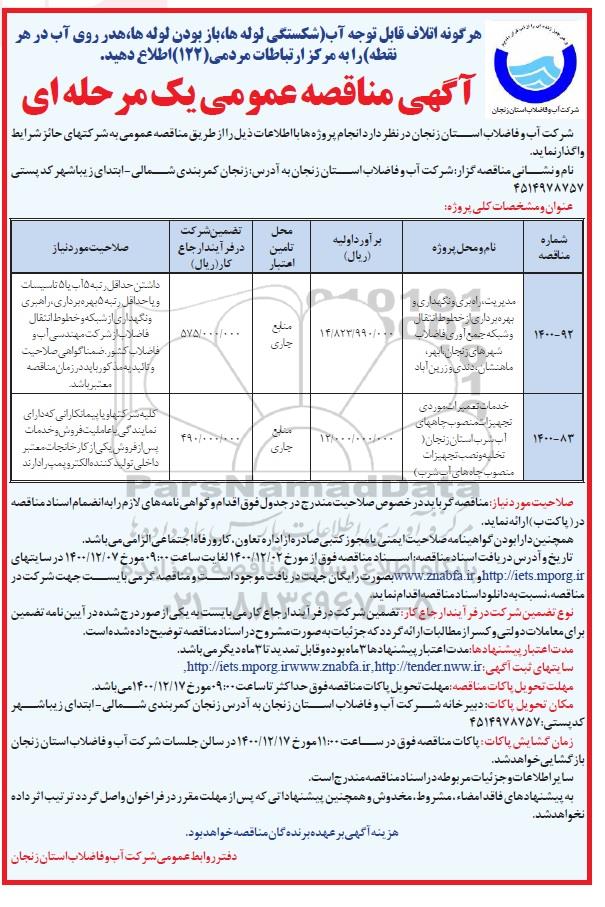 هرگونه اتلاف قابل توجه آب(شکستگی لوله ها،باز بودن لوله ها،هدر روی آب در هر
نقطه)را به مرکز ارتباطات مردمی(۱۲۲)اطلاع دهید.
شرکت آب و فاضلاب استان زنجان
آگهی مناقصه عمومی یک مرحله ای
شرکت آب و فاضلاب استان زنجان در نظر دارد انجام پروژه ها با اطلاعات ذیل را از طریق مناقصه عمومی به شرکتهای حائز شرایط
واگذار نماید.
نام و نشانی مناقصه گزار: شرکت آب و فاضلاب استان زنجان به آدرس: زنجان کمربندی شمالی-ابتدای زیباشهر کد پستی
۴۵۱۴۹۷۸۷۵۷
عنوان و مشخصات کلی پروژه:
شماره مناقصه
نام و محل پروژه
برآورد اولیه (ریال)
محل تامین اعتبار
تضمین شرکت در فرآیند ارجاع کار (ریال)
صلاحیت مورد نیاز
۱۴۰۰-۹۲
مدیریت، راهبری و نگهداری و
بهره برداری از خطوط انتقال
و شبکه جمع آوری فاضلاب
شهرهای زنجان، ابهر،
ماهنشان، دندی و زرین آباد
۱۴/۸۲۳/۹۹۰/۰۰۰
منابع جاری
۵۷۵/۰۰۰/۰۰۰
داشتن حداقل رتبه ۵ آب یا ۵ تاسیسات
و یا حداقل رتبه ۵ بهره برداری، راهبری
و نگهداری از شبکه و خطوط انتقال
فاضلاب از شرکت مهندسی آب و
فاضلاب کشور. ضمنا گواهی صلاحیت
و تائیدیه مذکور باید در زمان مناقصه
معتبر باشد.
۱۴۰۰-۸۳
خدمات تعمیرات موردی
تجهیزات منصوب چاههای
آب شرب استان زنجان (
تخلیه و نصب تجهیزات
منصوب چاه های آب شرب)
۱۲/۰۰۰/۰۰۰/۰۰۰
منابع جاری
۴۹۰/۰۰۰/۰۰۰
کلیه شرکتها و یا پیمانکارانی که دارای
نمایندگی یا عاملیت فروش و خدمات
پس از فروش یکی از کارخانجات معتبر
داخلی تولید کننده الکتروپمپ را دارند
صلاحیت مورد نیاز: مناقصه گر باید در خصوص صلاحیت مندرج در جدول فوق اقدام و گواهی نامه های لازم را به انضمام اسناد مناقصه
در (پاکت ب) ارائه نماید.
همچنین دارا بودن گواهینامه صلاحیت ایمنی یا مجوز کتبی صادره از اداره تعاون، کار و رفاه اجتماعی الزامی می باشد.
تاریخ و آدرس دریافت اسناد مناقصه: اسناد مناقصه فوق از مورخ ۱۴۰۰/۱۲/۰۲ لغایت ساعت ۰۹:۰۰ مورخ ۱۴۰۰/۱۲/۰۷ در سایتهای
http://iets.mporg.ir و www.znabfa.ir بصورت رایگان جهت دریافت موجود است و مناقصه گر می بایست جهت شرکت در
مناقصه، نسبت به دانلود اسناد مناقصه اقدام نماید.
نوع تضمین شرکت در فرآیند ارجاع کار: تضمین شرکت در فرآیند ارجاع کار می بایست به یکی از صور درج شده در آیین نامه تضمین
برای معاملات دولتی و کسر از مطالبات ارائه گردد که جزئیات به صورت مشروح در اسناد مناقصه توضیح داده شده است.
مدت اعتبار پیشنهادها: مدت اعتبار پیشنهادها ۳ ماه بوده و قابل تمدید تا ۳ ماه دیگر می باشد.
سایتهای ثبت آگهی: http://iets.mporg.irwww.znabfa.ir,http://tender.nww.ir,
مهلت تحویل پاکات مناقصه: مهلت تحویل پاکات مناقصه فوق حداکثر تا ساعت ۰۹:۰۰ مورخ ۱۴۰۰/۱۲/۱۷ می باشد.
مکان تحویل پاکات: دبیرخانه شرکت آب و فاضلاب استان زنجان به آدرس زنجان کمربندی شمالی-ابتدای زیباشهر
کدپستی: ۴۵۱۴۹۷۸۷۵۷
زمان گشایش پاکات: پاکات مناقصه فوق در ساعت ۱۱:۰۰ مورخ ۱۴۰۰/۱۲/۱۷ در سالن جلسات شرکت آب و فاضلاب استان زنجان
بازگشایی خواهد شد.
سایر اطلاعات و جزئیات مربوطه در اسناد مناقصه مندرج است.
به پیشنهادهای فاقد امضاء، مشروط، مخدوش و همچنین پیشنهاداتی که پس از مهلت مقرر در فراخوان واصل گردد ترتیب اثر داده
نخواهد شد.
هزینه آگهی بر عهده برندگان مناقصه خواهد بود.
دفتر روابط عمومی شرکت آب و فاضلاب استان زنجان
ParsNamadData
۰۲۱-۸۸۳۴۹۶۷۰-۵